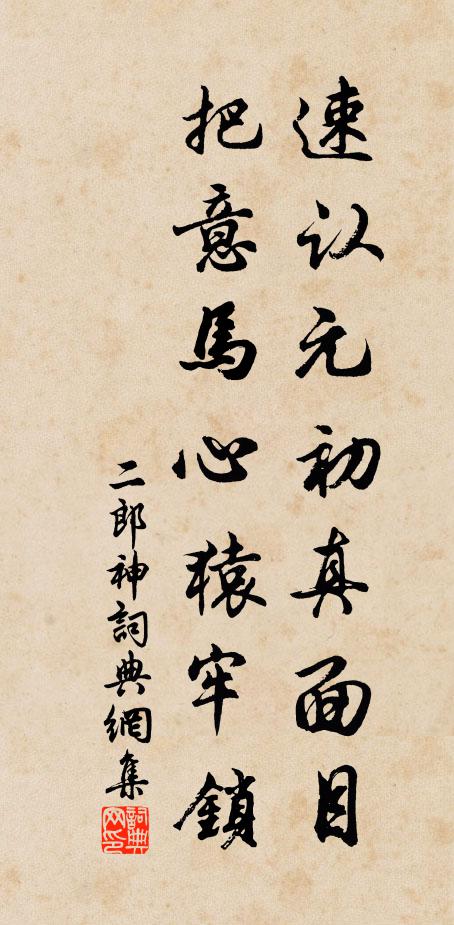 速认元初真面目
把意馬心猿牢鎖
二郎神詞典網集
詞典
网印